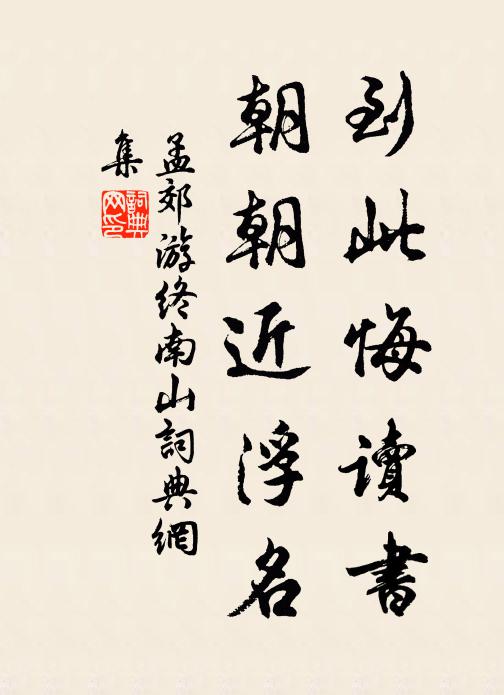 到此悔讀書
朝朝近浮名
孟郊游终南山詞典網
集
詞典網印